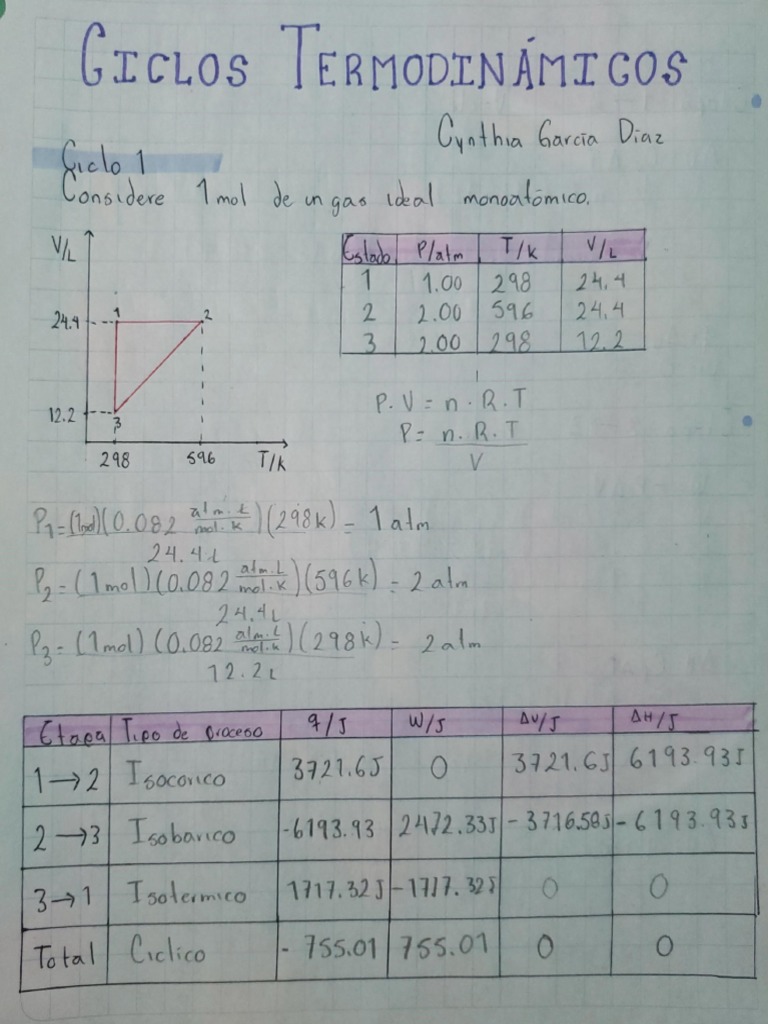 CICLOS TERMODINÁMICOS
Cynthia García Díaz
Ciclo 1
Considere 1mol de un gas ideal monoatómico.
V/L
24.4
12.2
1
2
3
298 596 T/k
Estado P/atm T/k V/L
1 1.00 298 24.4
2 2.00 596 24.4
3 2.00 298 12.2
P. V = n. R. T
P = n. R. T
V
P1 = (1mol)(0.082 atm. L / mol. k)(298k) = 1 atm
24.4L
P2 = (1mol)(0.082 atm. L / mol. K)(596k) = 2 atm
24.4L
P3 = (1mol)(0.082 atm. L / mol. k)(298k) = 2 atm
12.2L
Etapa Tipo de proceso q/J W/J ΔU/J ΔH/J
1→2 Isocorico 3721.6J 0 3721.6J 6193.93J
2→3 Isobarico -6193.93 2472.33J -3716.58J -6193.93J
3→1 Isotermico 1717.32J -1717.32J 0 0
Total Ciclico - 755.01 755.01 0 0